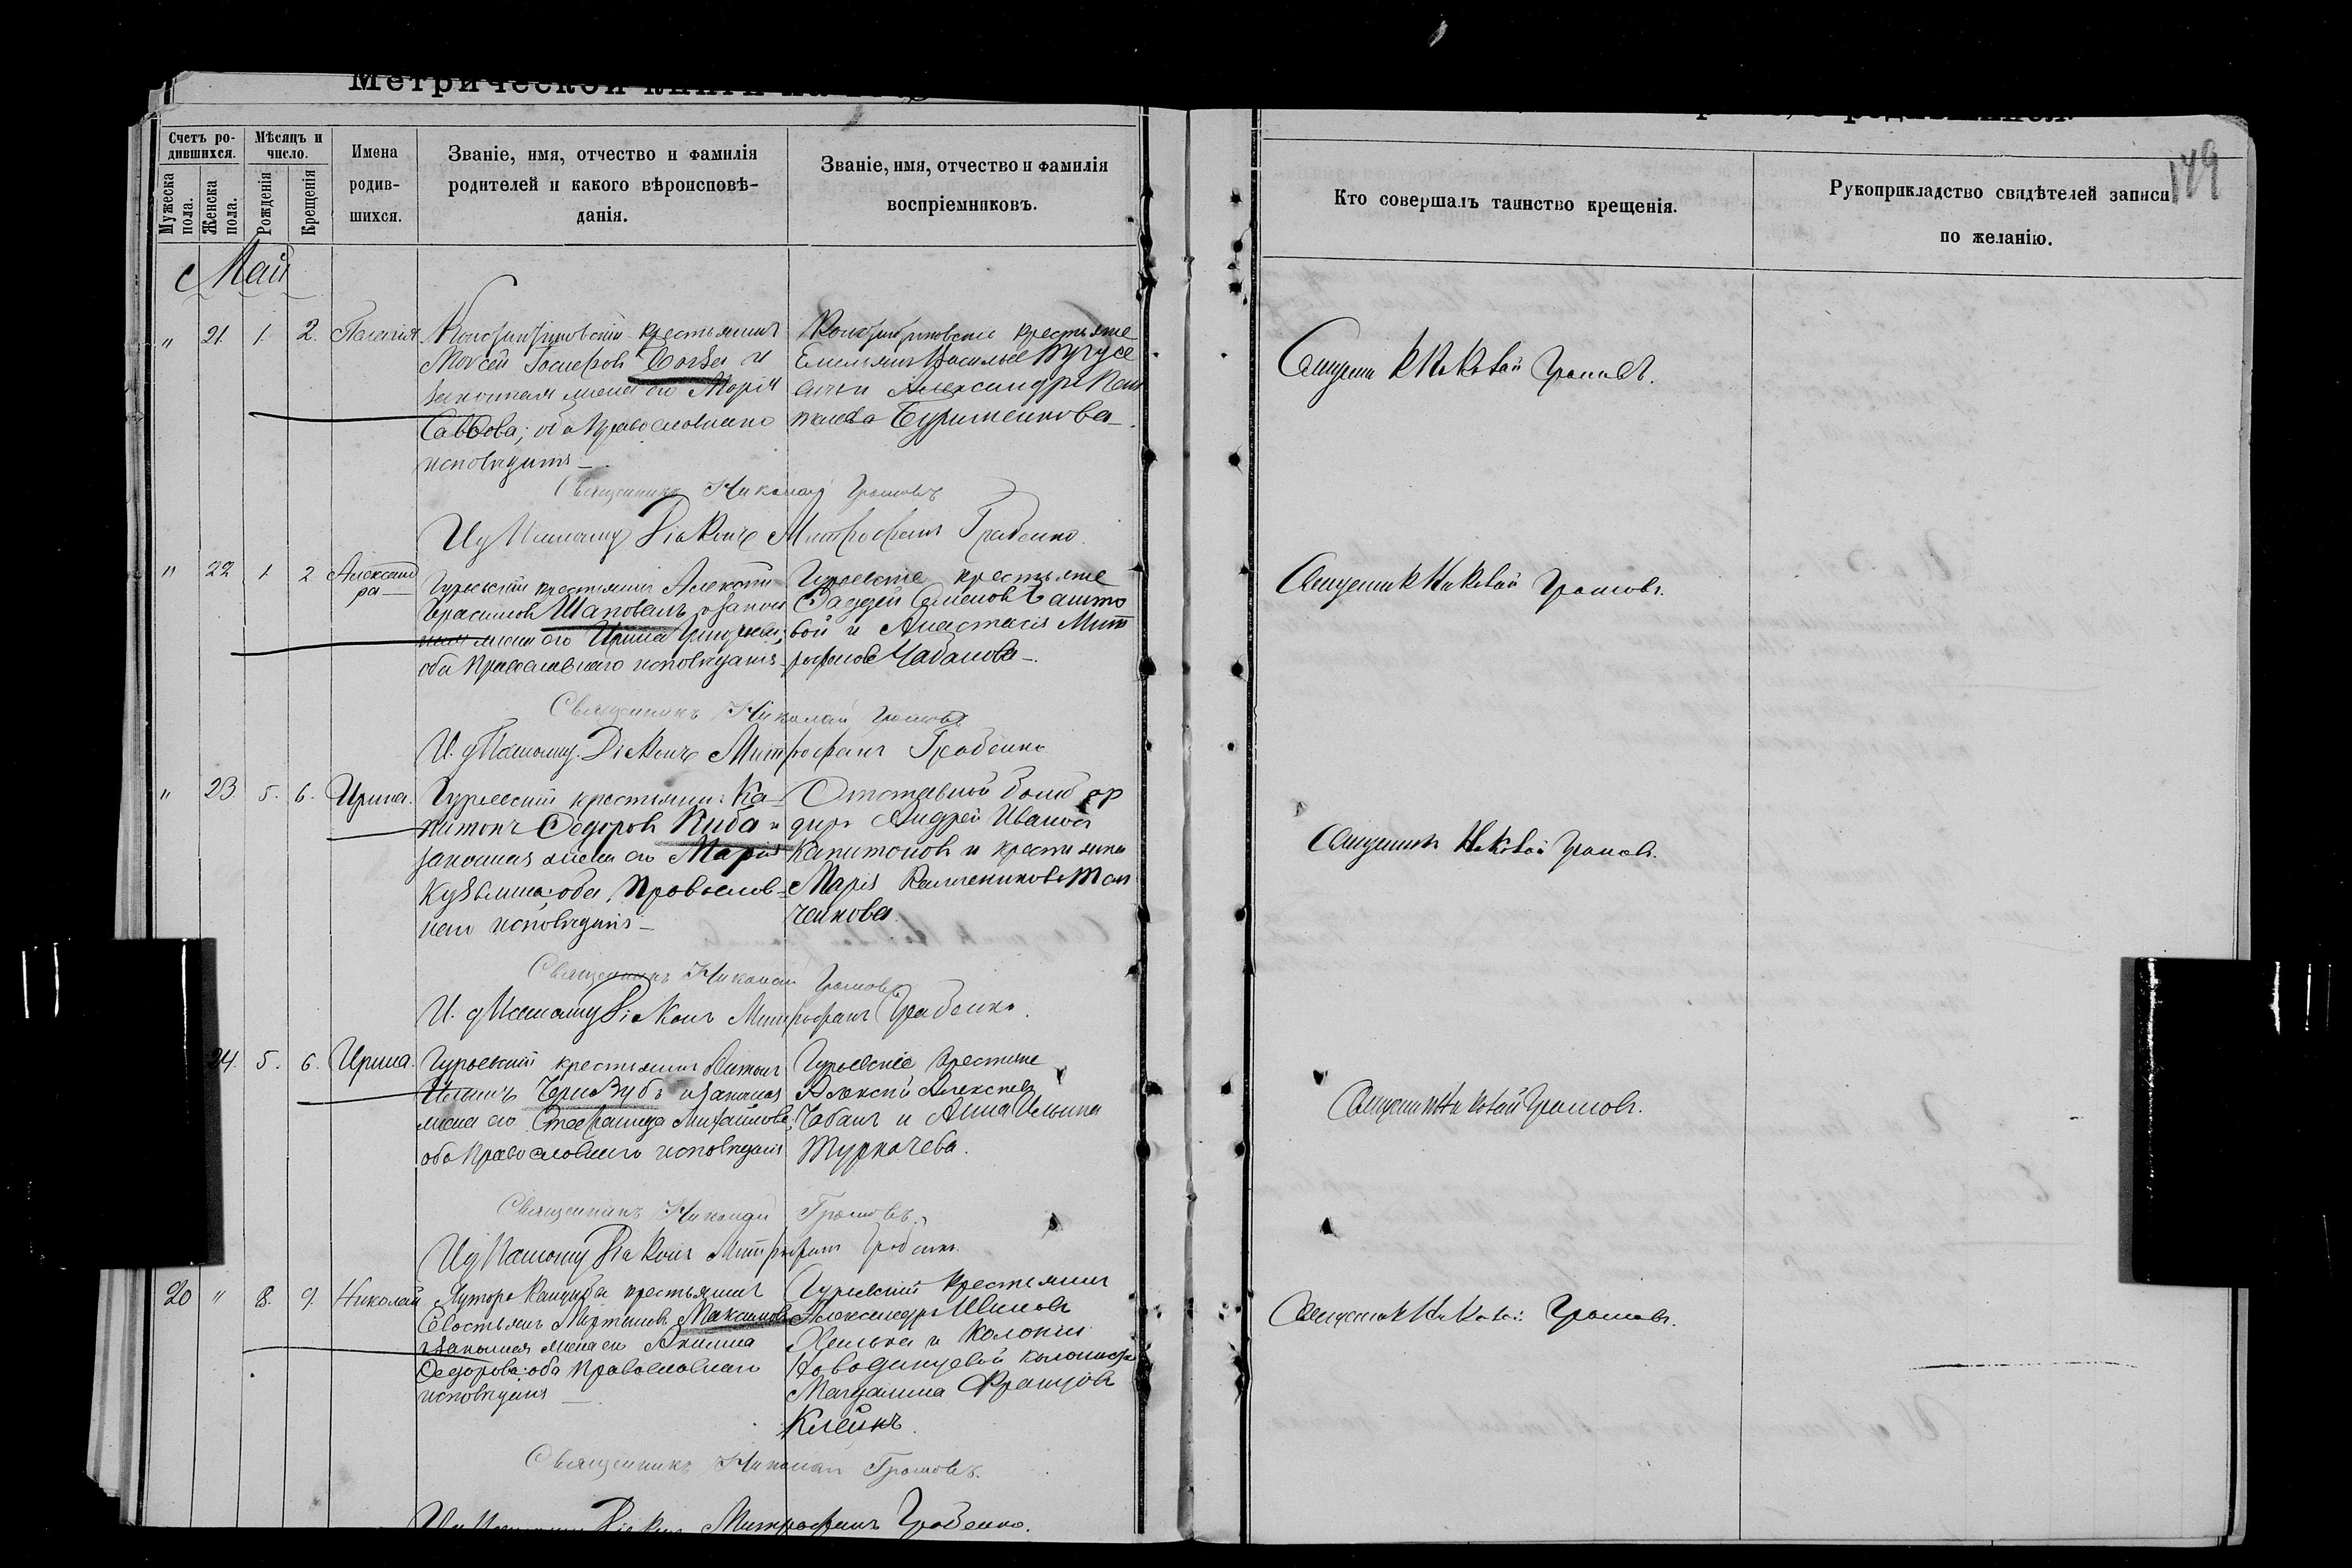 Метрической книги на
Счетъ ро-
дившихся.
Мужеска
пола.
Женска
пола.
Мѣсяцъ и
число.
Рожденія
Крещенія
Имена
родив-
шихся.
Званіе, имя, отчество и фамилія
родителей и какого вѣроисповѣ-
данія.
Званіе, имя, отчество и фамилія
воспріемниковъ.
Кто совершалъ таинство крещенія.
Рукоприкладство свидѣтелей записи
по желанію.
149
Май
„ 21. 1. 2. Пелагія
крестьянинъ
Мойсей Іосифовъ и
законная жена его Марія
Саввова; оба православнаго
исповѣданія
крестьяне
Емельянъ Васильевъ
Александра
Бурименкова
Священникъ Николай Громовъ.
Священникъ Николай Громовъ
Діаконъ Митрофанъ Грабенко.
„ 22 1. 2 Александ
ра
Гурьевскій крестьянинъ Алексѣй
Герасимовъ Шаповалъ и закон
ная жена его Ирина Григорьева;
оба православнаго исповѣданія
Гурьевскіе крестьяне
Фаддей Семеновъ Башто
вой и Анастасія Мит
рофанова Чабанова
Священникъ Николай Громовъ.
Священникъ Николай Громовъ
И. д. Псаломщ. Діаконъ Митрофанъ Грабенко
„ 23. 5. 6. Ирина.
Гурьевскій крестьянинъ Ка-
питонъ Федоровъ Киба и
законная жена его Марія
Кузьмина; оба Православ-
наго исповѣданія
Отставной бомбар
диръ Андрей Ивановъ
Капитоновъ и крестьянка
Марія
ченкова.
Священникъ Николай Громовъ.
Священникъ Николай Громовъ
И. д. Псаломщ Діаконъ Митрофанъ Грабенко.
24. 5. 6. Ирина.
Гурьевскій крестьянинъ Антонъ
Ильинъ Черизубъ и законная
жена его Стефанида Михайлова;
оба православнаго исповѣданія
Гурьевскіе крестьяне
Алексѣй Алексѣевъ
Чабанъ и Анна Ильина
Журначева.
Священникъ Николай Громовъ.
Священникъ Николай Громовъ.
И д Псаломщ Діаконъ Митрофанъ Грабенко.
20 „ 8. 9. Николай
Хутора крестьянинъ
Севостьянъ Мартыновъ Максимовъ
и законная жена его Акилина
Федорова; оба православнаго
исповѣданія
Гурьевскій крестьянинъ
Александръ Ивановъ
и колоніи
колонистка
Магдалина Францова
Клейнъ.
Священникъ Николай Громовъ.
Священникъ Николай Громовъ.
Діаконъ Митрофанъ Грабенко.